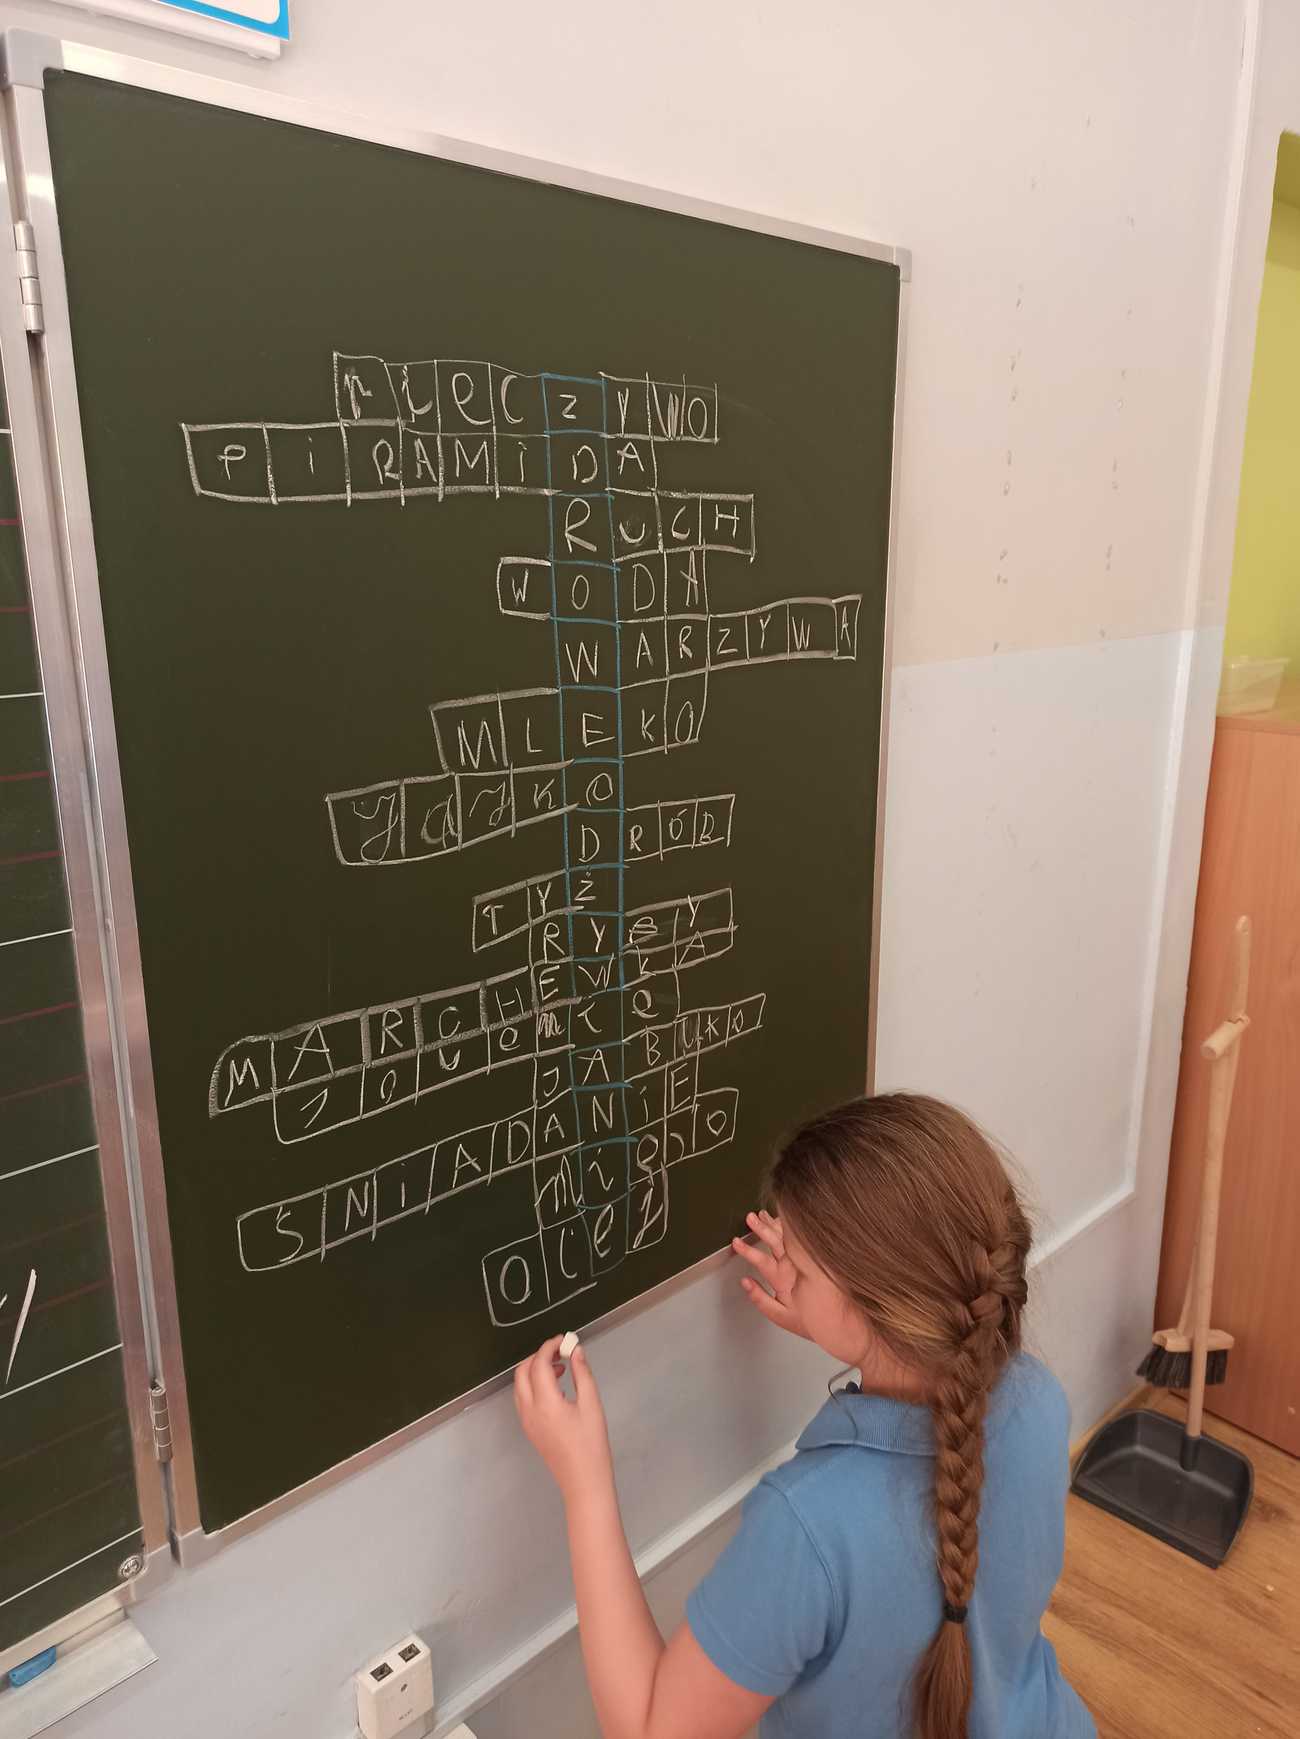 PiECZYWO
PiRAMiDA
RUCH
WODA
WARZYWA
MLEKO
JAJKO
DRÓB
TYŻ
RYBY
MARCHEWKA
JABŁKO
ŚNiADANiE
Mięso
Olej